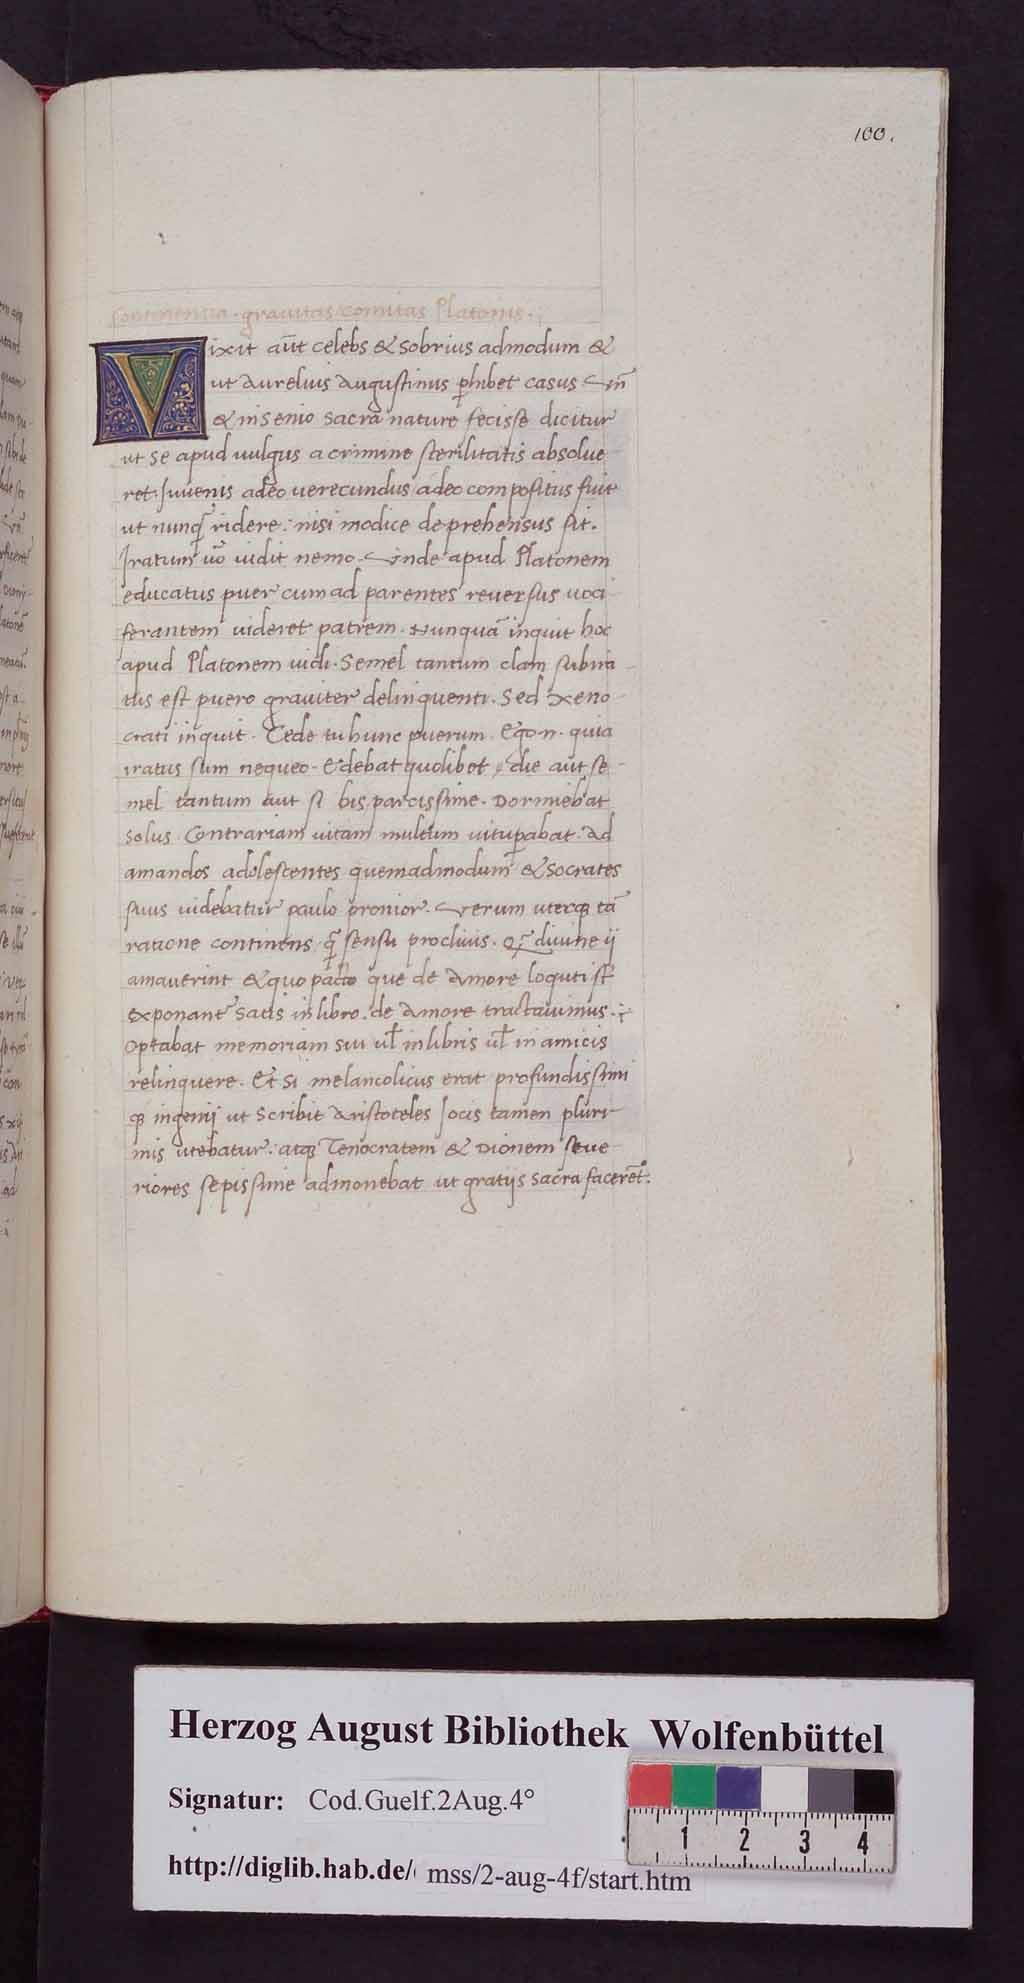 100.
Continentia. grauitas comitas Platonis.
Vixit aūt celebs & sobrius admodum &
ut Aurelius Augustinus phibet casus Vñ
& in senio sacra nature fecisse dicitur
ut se apud uulgus a crimine sterilitatis absolue
ret. Juuenis adeo uerecundus adeo compositus fuit
ut nunq̄ ridere: nisi modice deprehensus sit.
Jratum uō uidit nemo. Vnde apud Platonem
educatus puer cum ad parentes reuersus uoci
ferantem uideret patrem. Nunquā inquit hoc
apud Platonem uidi. Semel tantum clam subira
tus est puero grauiter delinquenti. Sed Xeno
crati inquit. Cede tu hunc puerum. Ego .n. quia
iratus sum nequeo. Edebat quolibet die aut se
mel tantum aut si bis parcissime. Dormiebat
solus. Contrariam uitam multum uitupabat. Ad
amandos adolescentes quemadmodum & Socrates
suus uidebatur paulo pronior. Verum uterq; tā
ratione continens q̄ sensu procliuis. Q̄ diuine ij
amauerint & quo pacto que de Amore loquti st̄
exponant satis in libro. de Amore tractauimus.
Optabat memoriam sui ul̄ in libris ul̄ in amicis
relinquere. Et si melancolicus erat profundissimi
q; ingenij ut scribit Aristoteles Jocis tamen pluri
mis utebatur: atq; Tenocratem & Dionem seue
riores sepissime admonebat ut gratijs sacra facerēt.
Herzog August Bibliothek Wolfenbüttel
Signatur: Cod.Guelf.2Aug.4°
1 2 3 4
http://diglib.hab.de/ mss/2-aug-4f/start.htm